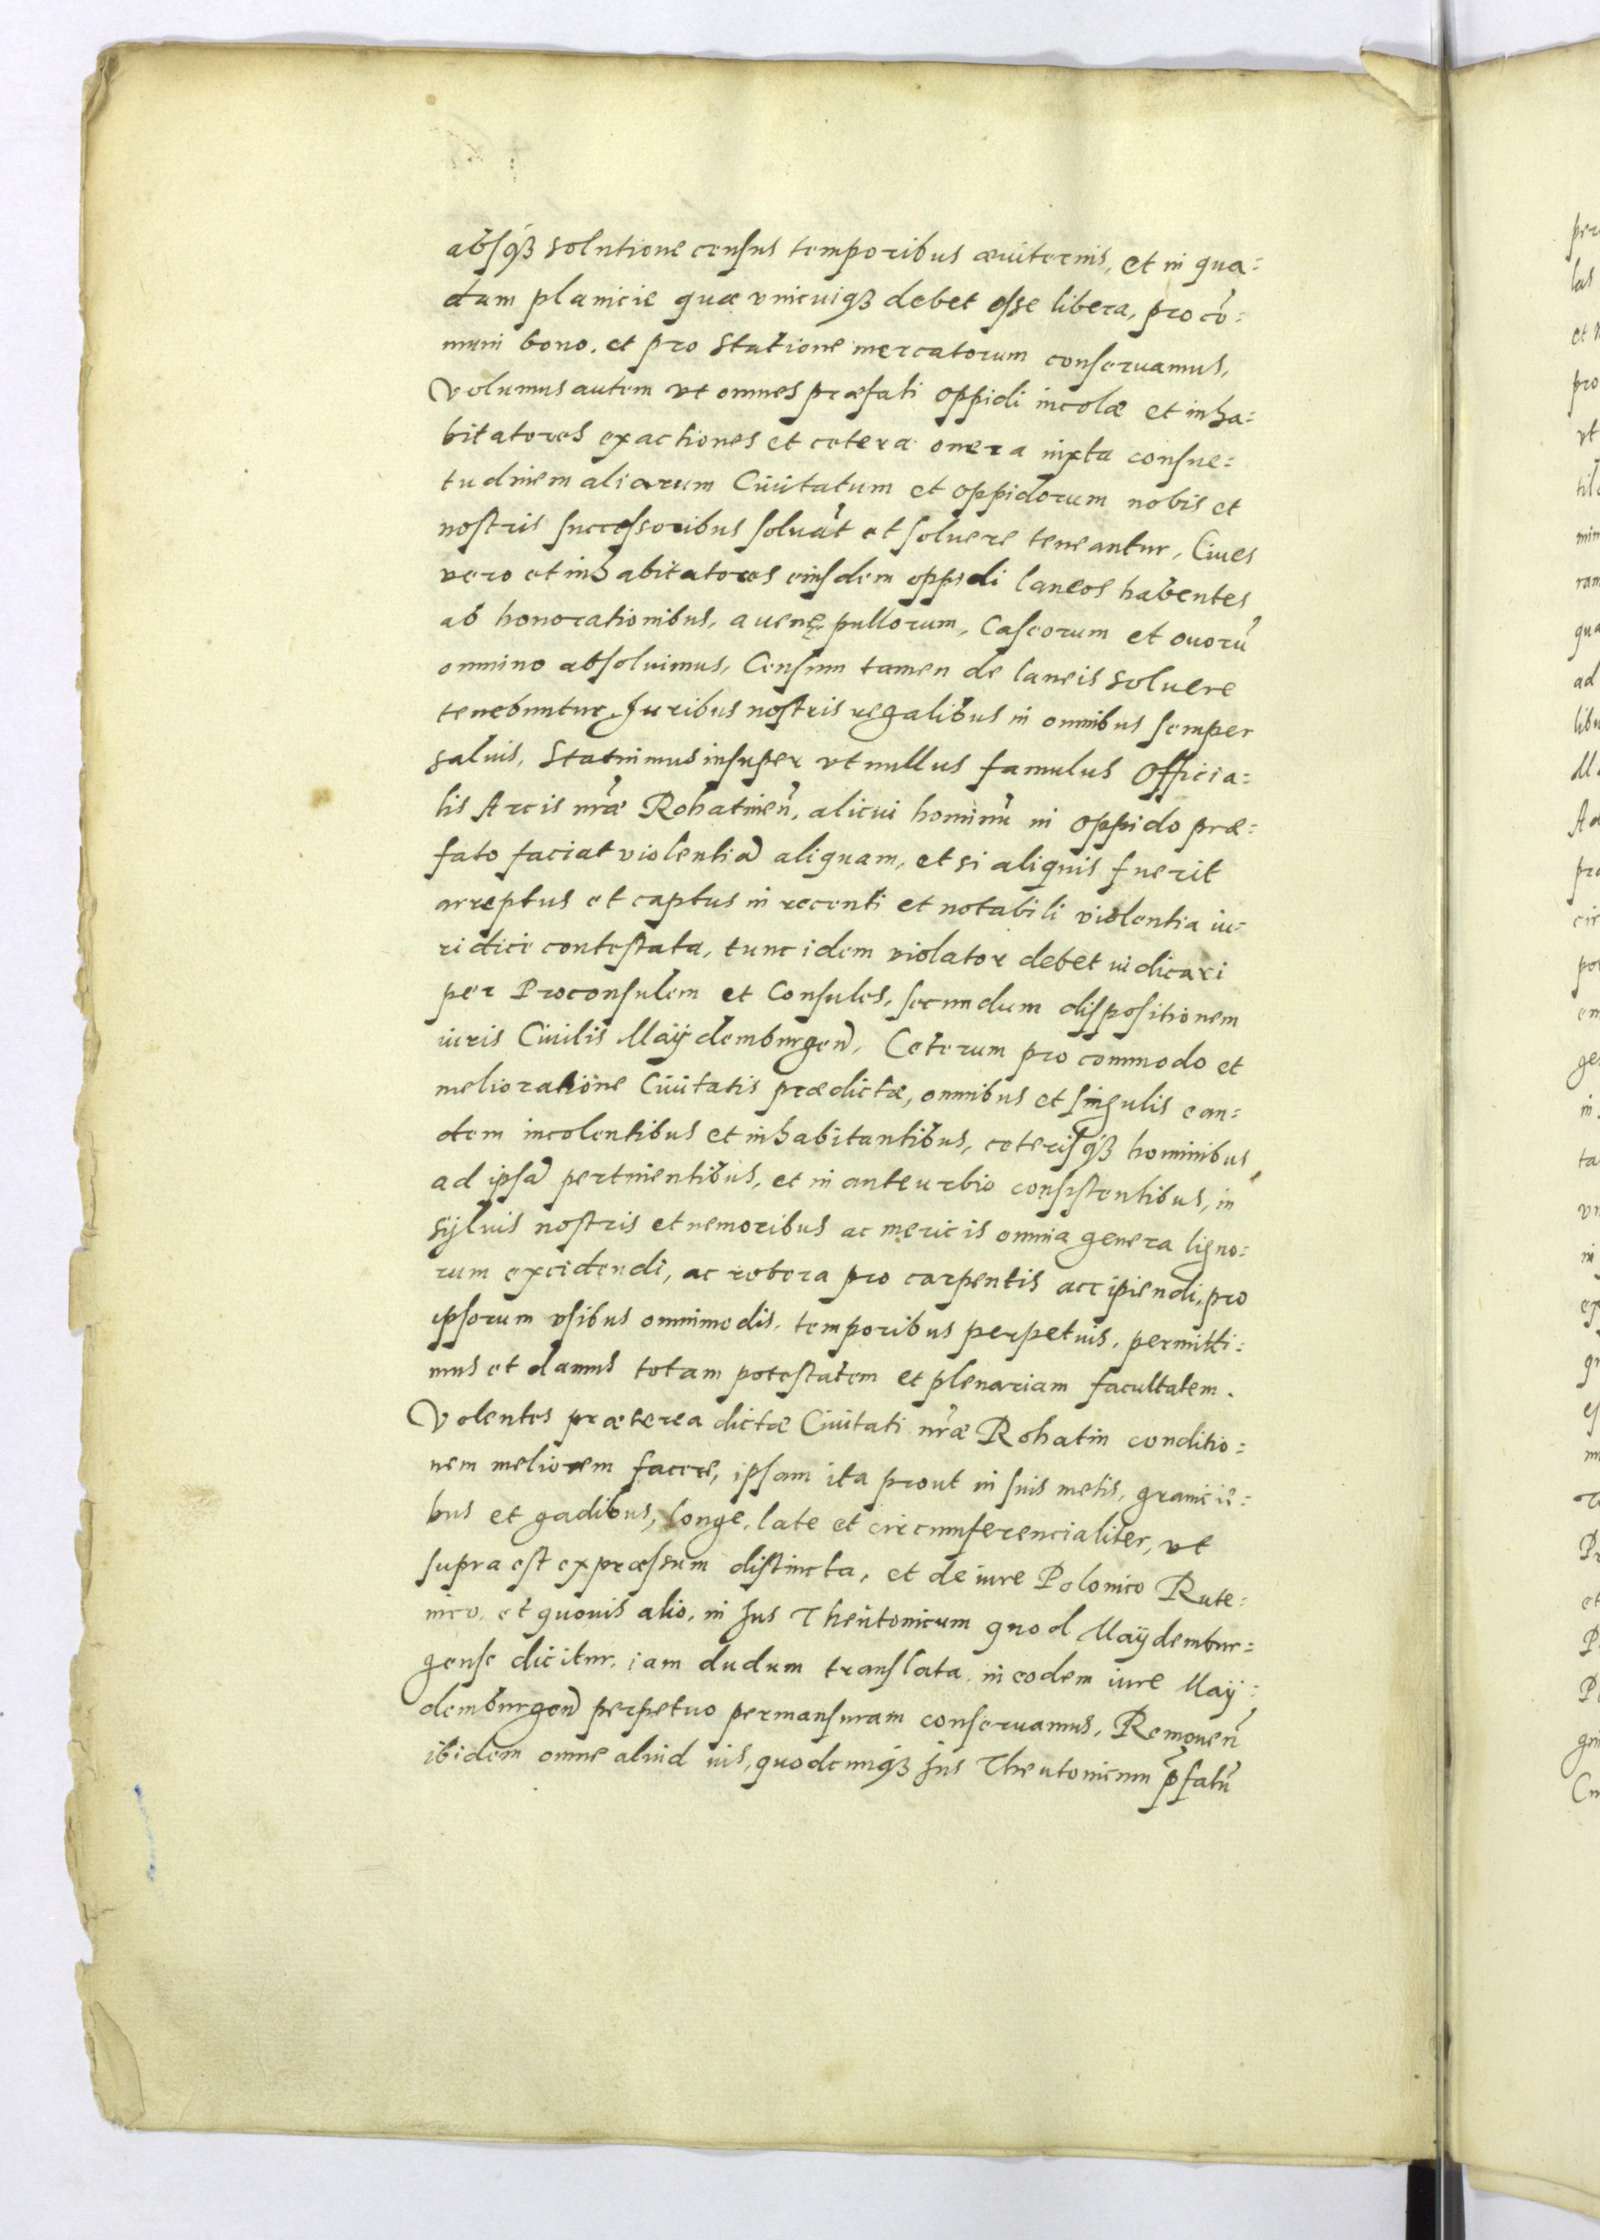 absq3 solutione census temporibus æuiternis, et in qua=
dam planicie quæ vnicuiq3 debet esse libera, pro cō=
muni bono, et pro statione mercatorum conseruamus,
Volumus autem vt omnes præfati oppidi incolæ et inha=
bitatores exactiones et cetera onera iuxta consue=
tudinem aliarum Ciuitatum et oppidorum nobis et
nostris successoribus soluāt et soluere teneantur, Ciues
vero et inhabitatores eiusdem oppidi laneos habentes
ab honorationibus, auenę, pullorum, Caseorum et ouorū
omnino absoluimus, Censum tamen de laneis soluere
tenebuntur, Juribus nostris regalibus in omnibus semper
saluis, Statuimus insuper vt nullus famulus Officia=
lis Arcis nr̃æ Rohatineñ, alicui hominū in oppido præ=
fato faciat violentiā aliquam, et si aliquis fuerit
arreptus et captus in recenti et notabili violentia iu=
ridice contestata, tunc idem violator debet iudicari
per Proconsulem et Consules, secundum dispositionem
iuris Ciuilis Maÿdemburgeñ, Ceterum pro commodo et
melioratione Ciuitatis prædictæ, omnibus et singulis ean=
dem incolentibus et inhabitantibus, ceterisq3 hominibus
ad ipsā pertinentibus, et in anteurbio consistentibus, in
sÿluis nostris et nemoribus ac mericis omnia genera ligno=
rum excidendi, ac robora pro carpentis accipiendi, pro
ipsorum vsibus omnimodis, temporibus perpetuis, permitti=
mus et damus totam potestatem et plenariam facultatem.
Volentes præterea dictæ Ciuitati nr̃æ Rohatin conditio=
nem meliorem facere, ipsam ita prout in suis metis, granicie=
bus et gadibus, longe, late et circumferencialiter, vt
supra est expræssum distincta, et de iure Polonico Rute=
nico, et quouis alio, in Jus Theutonicum quod Maÿdembur=
gense dicitur, iam dudum translata, in eodem iure Maÿ=
demburgeñ perpetuo permansuram conseruamus, Remoueñ
ibidem omne aliud ius, quodcunq3 Jus Theutonicum p̃fatū